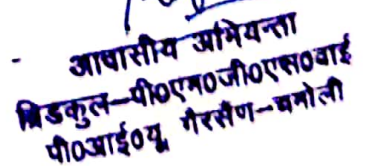 आवासीय अभियन्ता
ब्रिडकुल-पी०एम०जी०एस०वाई
पी०आई०यू, गैरसैण-चमोली